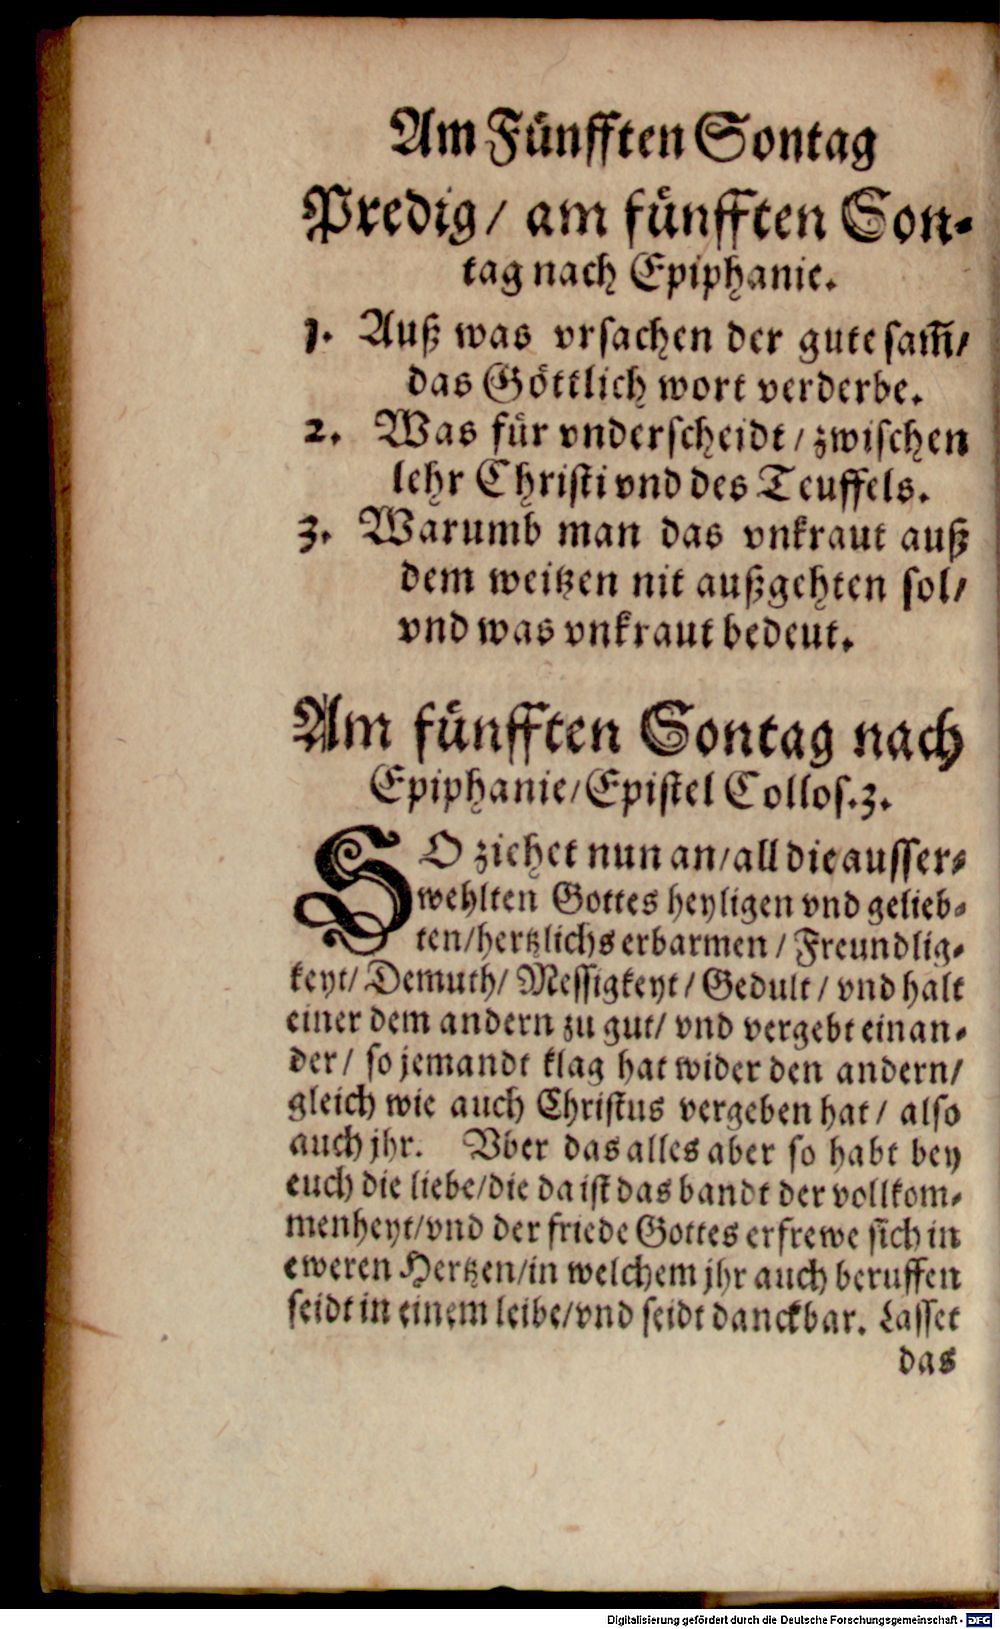 Am Fünfften Sontag
Predig/ am fünfften Son-
tag nach Epiphanie.
1. Auß was vrsachen der gute sam̄/
das Göttlich wort verderbe.
2. Was für vnderscheidt/ zwischen
lehr Christi vnd des Teuffels.
3. Warumb man das vnkraut auß
dem weitzen nit außgehten sol/
vnd was vnkraut bedeut.
Am fünfften Sontag nach
Epiphanie/ Epistel Collos. 3.
SO ziehet nun an/ all die ausser-
wehlten Gottes heyligen vnd gelieb-
ten/ hertzlichs erbarmen/ Freundlig-
keyt/ Demuth/ Messigkeyt/ Gedult/ vnd halt
einer dem andern zu gut/ vnd vergebt einan-
der/ so jemandt klag hat wider den andern/
gleich wie auch Christus vergeben hat/ also
auch jhr. Vber das alles aber so habt bey
euch die liebe/ die da ist das bandt der vollkom-
menheyt/ vnd der friede Gottes erfrewe sich in
eweren Hertzen/ in welchem jhr auch beruffen
seidt in einem leibe/ vnd seidt danckbar. Lasset
das
Digitalisierung gefördert durch die Deutsche Forschungsgemeinschaft - DFG